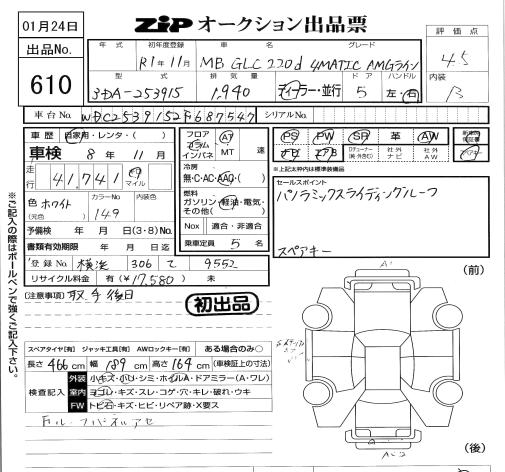 01月24日
ZIP オークション出品票
出品No.
610
評価点
4.5
内装
B
年式 初年度登録 車名 グレード
R1年11月 MB GLC 220d 4MATIC AMGライン
型式 排気量 ドア ハンドル
3DA-253915 1,940 ディーラー・並行 5 左・右
車台No. WDC2539152F687547 シリアルNo.
車歴 自家用・レンタ・( )
車検 8年 11月
走行 41,741 km マイル
色 ホワイト カラーNo 149 内装色
(元色)
予備検 年 月 日(3・8)No.
書類有効期限 年 月 日迄
登録No. 横浜 306 て 9552
リサイクル料金 有(¥17,580) 無
フロア コラム インパネ AT MT 速
冷房
無・C・AC・AAC・( )
燃料
ガソリン・軽油・電気・その他( )
Nox 適合・非適合
乗車定員 5名
PS PW SR 革 AW
ナビ エアB 社外ナビ 社外AW
新車時保証書
スペアキー
※上記太枠内は標準装備品
セールスポイント
パノラミックスライディングルーフ
スペアキー
(注意事項) 取手後日
初出品
スペアタイヤ[有] ジャッキ工具[有] AWロックキー[有] ある場合のみ○
長さ 466cm 幅 189cm 高さ 164cm (車検証上の寸法)
検査記入
外装 小キズ・小凹・シミ・ホイルA・ドアミラー(A・ワレ)
室内 ヨゴレ・キズ・スレ・コゲ・穴・キレ・破れ・ウキ
FW トビ石・キズ・ヒビ・リペア跡・X要ス
※ご記入の際はボールペンで強くご記入下さい。
A1
(前)
(後)